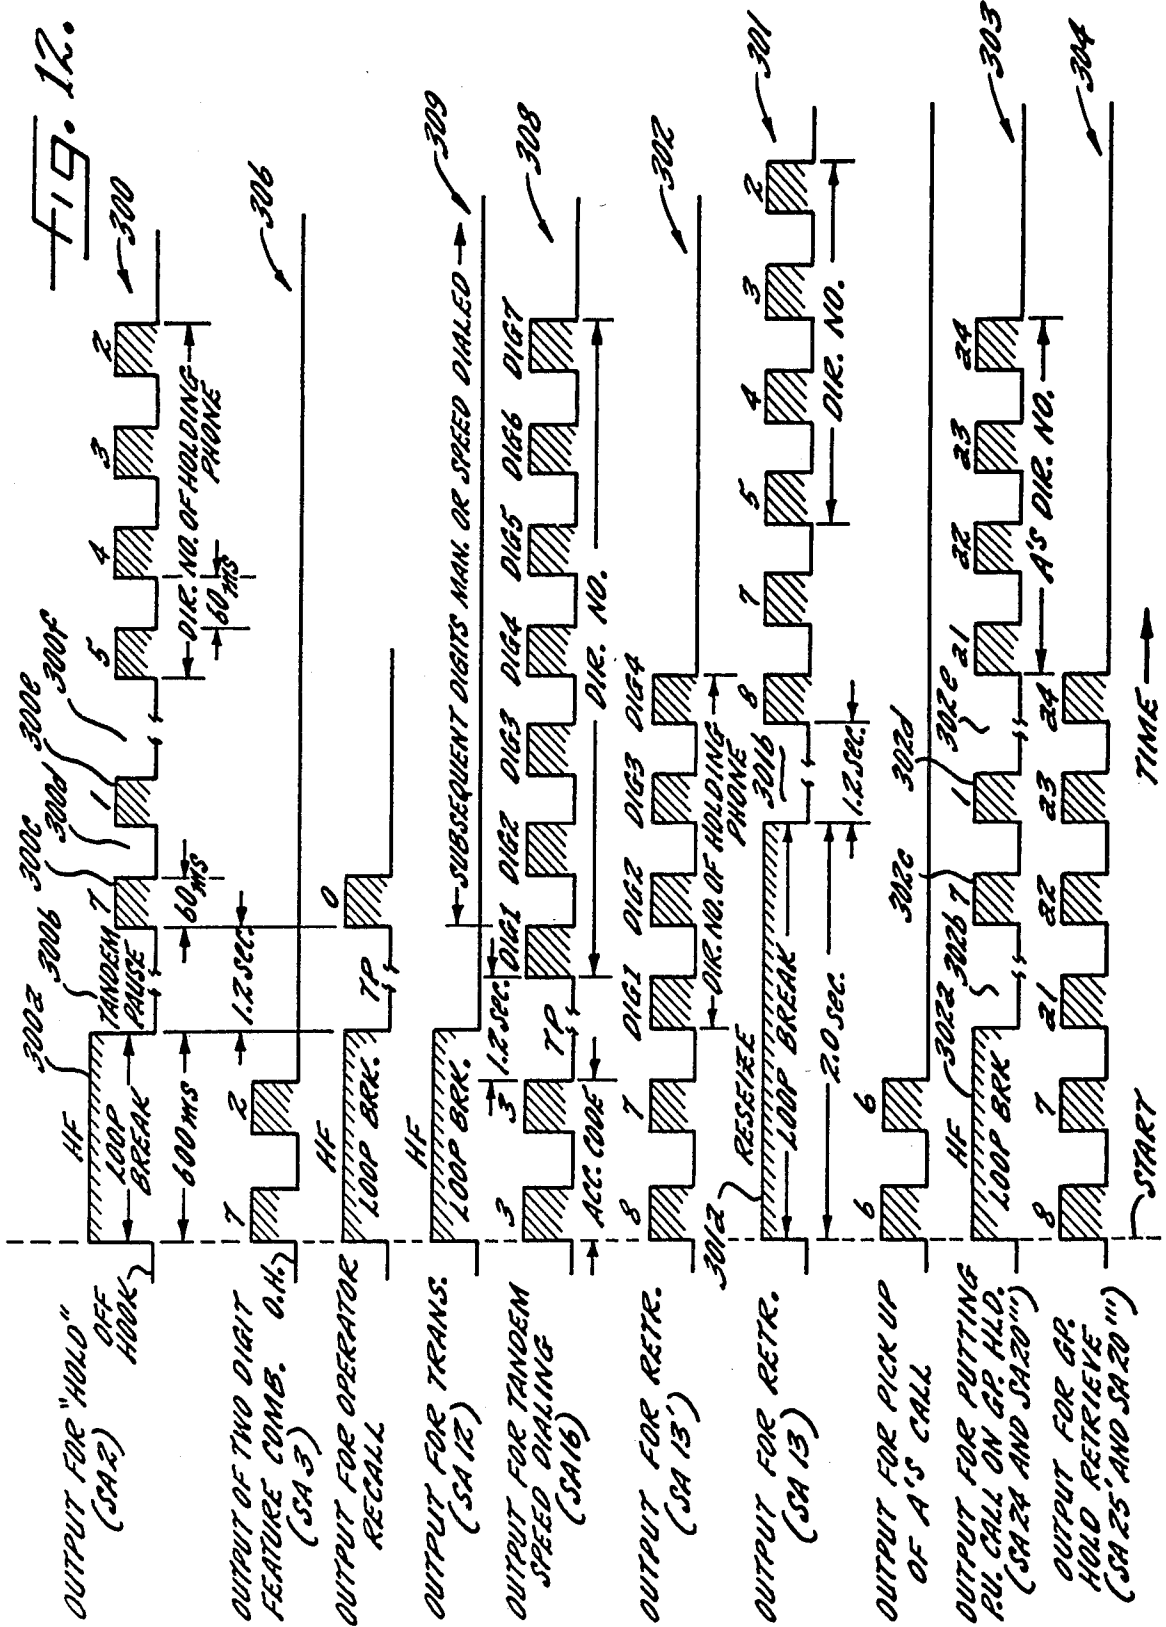 Fig. 12.
OUTPUT FOR "HOLD"
(SA2)
OFF
HOOK
HF
LOOP
BREAK
600 MS
300a
TANDEM
PAUSE
300b
1.2 SEC.
7
300c
60 MS
300d
1
300e
300f
5
4
3
2
DIR. NO. OF HOLDING
PHONE
60 MS
300
OUTPUT OF TWO DIGIT
FEATURE COMB.
(SA3)
O.H.
7
2
306
OUTPUT FOR OPERATOR
RECALL
HF
LOOP BRK.
TP
0
OUTPUT FOR TRANS.
(SA 12)
HF
LOOP BRK.
SUBSEQUENT DIGITS MAN. OR SPEED DIALED
309
OUTPUT FOR TANDEM
SPEED DIALING
(SA16)
3
3
ACC. CODE
1.2 SEC.
TP
DIG1
DIG2
DIG3
DIG4
DIG5
DIG6
DIG7
DIR. NO.
308
OUTPUT FOR RETR.
(SA 13')
8
7
DIG1
DIG2
DIG3
DIG4
DIR. NO. OF HOLDING
PHONE
302
OUTPUT FOR RETR.
(SA 13)
301a
RESEIZE
LOOP BREAK
2.0 SEC.
301b
1.2 SEC.
8
7
5
4
3
2
DIR. NO.
301
OUTPUT FOR PICK UP
OF A'S CALL
6
6
OUTPUT FOR PUTTING
P.U. CALL ON GP. HLD.
(SA 24 AND SA20''')
HF
LOOP BRK
302a
302b
7
302c
1
302d
302e
21
22
23
24
A'S DIR. NO.
303
OUTPUT FOR GP.
HOLD RETRIEVE
(SA 25' AND SA 20''')
8
7
21
22
23
24
304
START
TIME